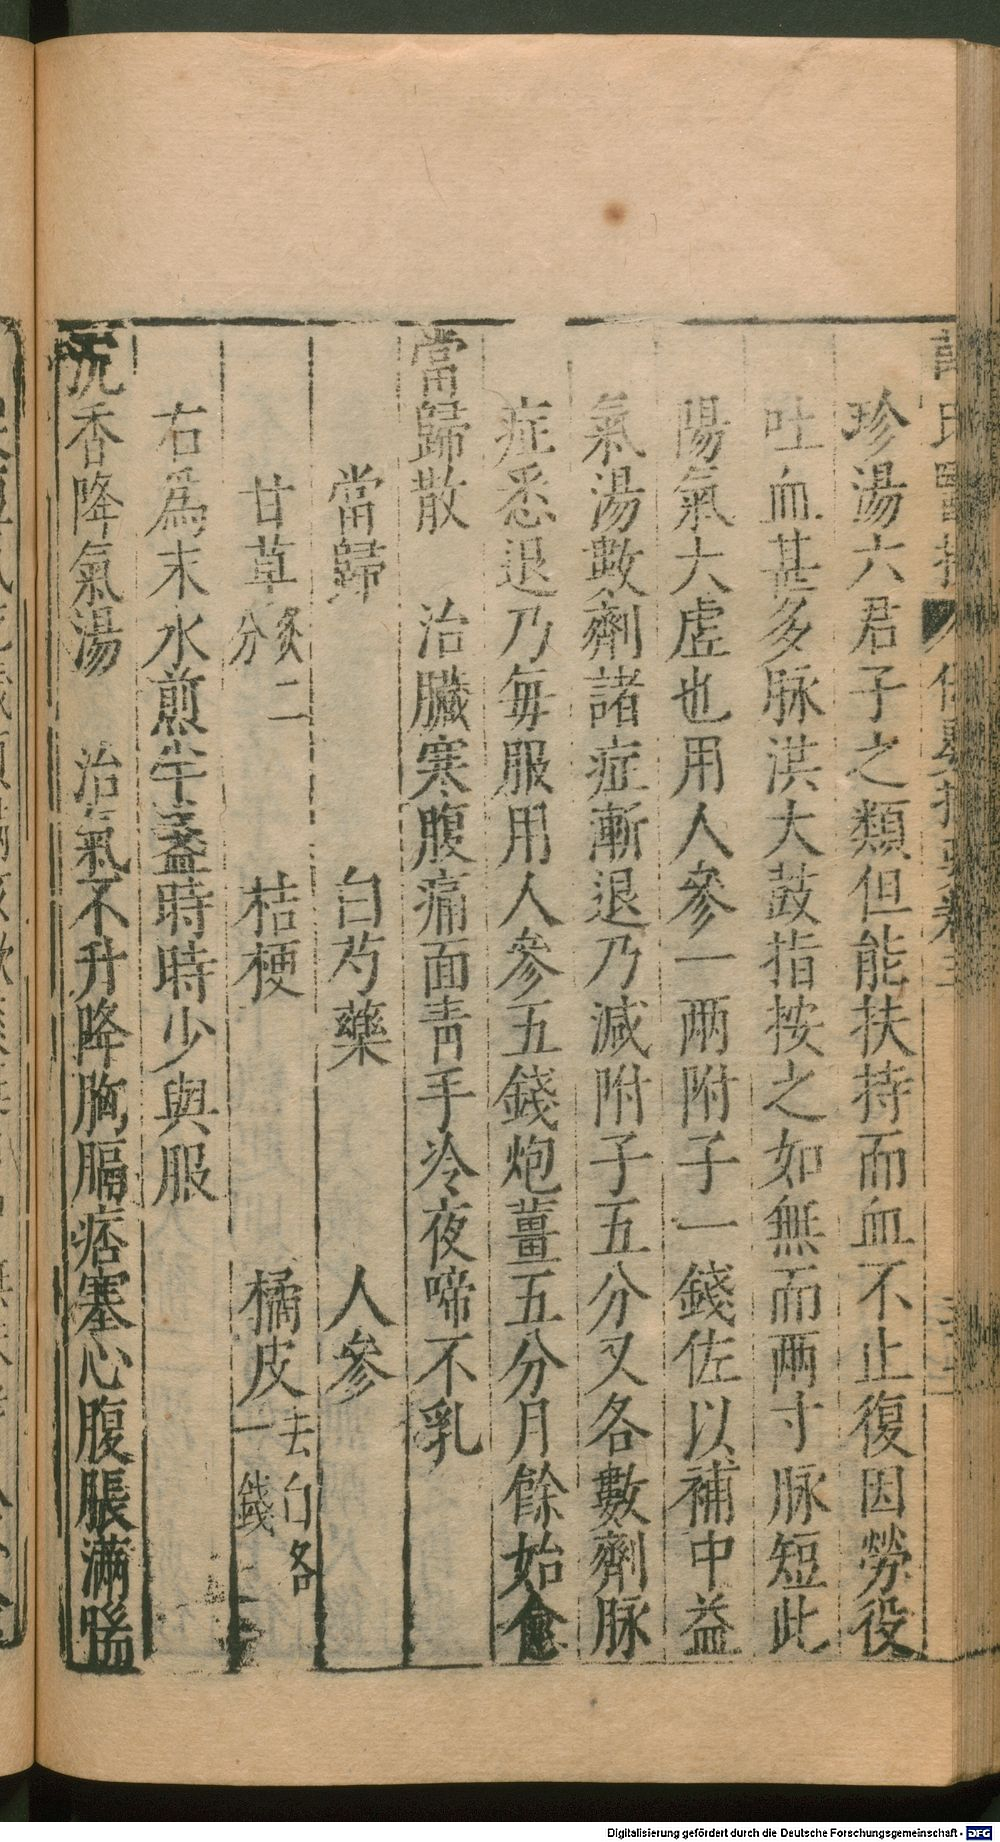 氏醫
珍湯六君子之類但能扶持而血不止復因勞役
吐血甚多脉洪大鼓指按之如無而两寸脉短此
陽氣大虛也用人參一兩附子一錢佐以補中益
氣湯數劑諸症漸退乃減附子五分又各數劑脉
症悉退乃每服用人參五錢炮薑五分月餘始愈
當歸散　治臟寒腹痛面青手冷夜啼不乳
當歸　白芍藥　人參
甘草炙二分　桔梗　橘皮去白各一錢
右爲末水煎半盞時時少與服
沉香降氣湯　治氣不升降胸膈痞塞心腹脹滿喘
Digitalisierung gefördert durch die Deutsche Forschungsgemeinschaft - DFG